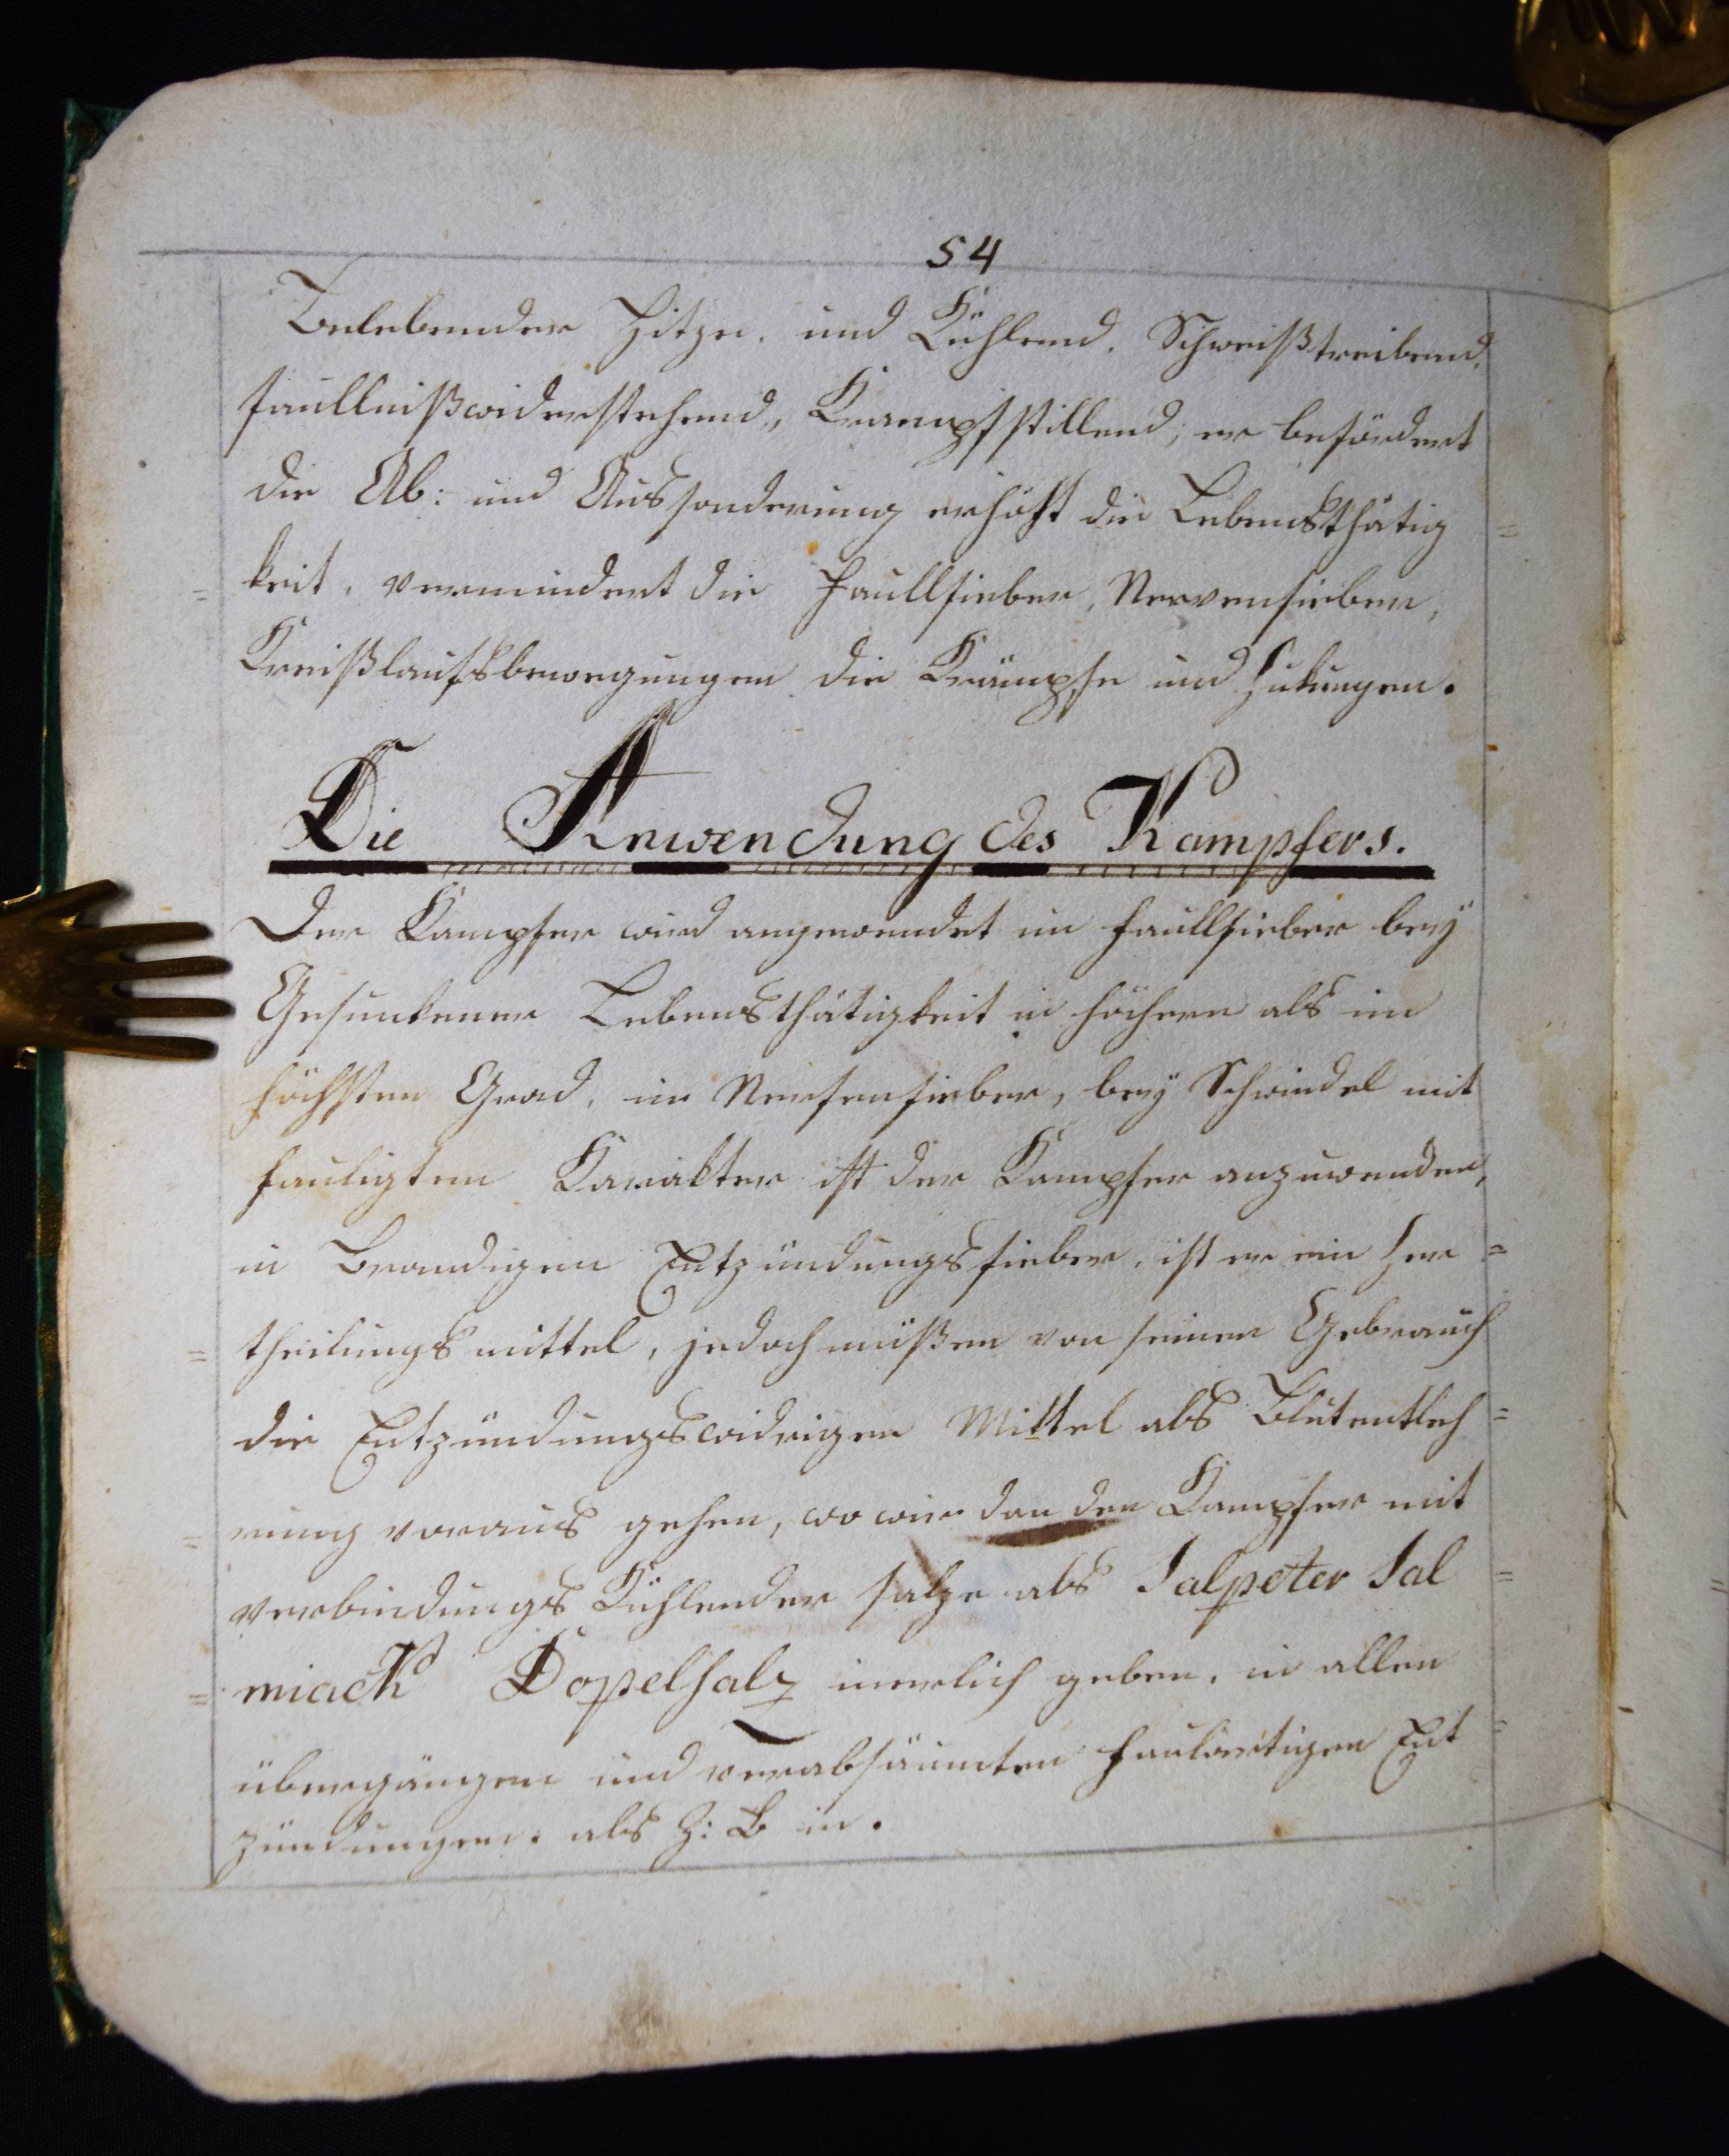 54
Belebender Hitze. und Kühlend. Schweißtreibend.
faullnißwiderstehend, Krampfstillend; er befördert
die Ab: und Aussonderung erhöht die Lebensthätig =
= keit, vermindert die Faullfieber, Nervenfieber,
Kreißlaufsbewegungen die Krämpfe und Zukungen.
Die Anwendung des Kampfers.
Der Kampfer wird angewendet im faullfieber bey
Gesunkener Lebensthätigkeit in höhern als im
höchsten Grad, im Nerfenfieber, bey Schwindel mit
fauligtem Karakter ist der Kampfer anzuwenden,
in Brandigen Entzündungsfieber, ist er ein Zer =
= theilungsmittel, jedoch müßen von seinen Gebrauch
die Entzündungswidrigen Mittel als Blutentleh =
= rung voraus gehen, wo wir dan den Kampfer mit
verbindungs Kühlender salze als Salpeter Sal =
= miack Dopelsalz inerlich geben, in allen
übergängen und verabsäumten faulartigen Ent =
zündungen. als Z: B in.